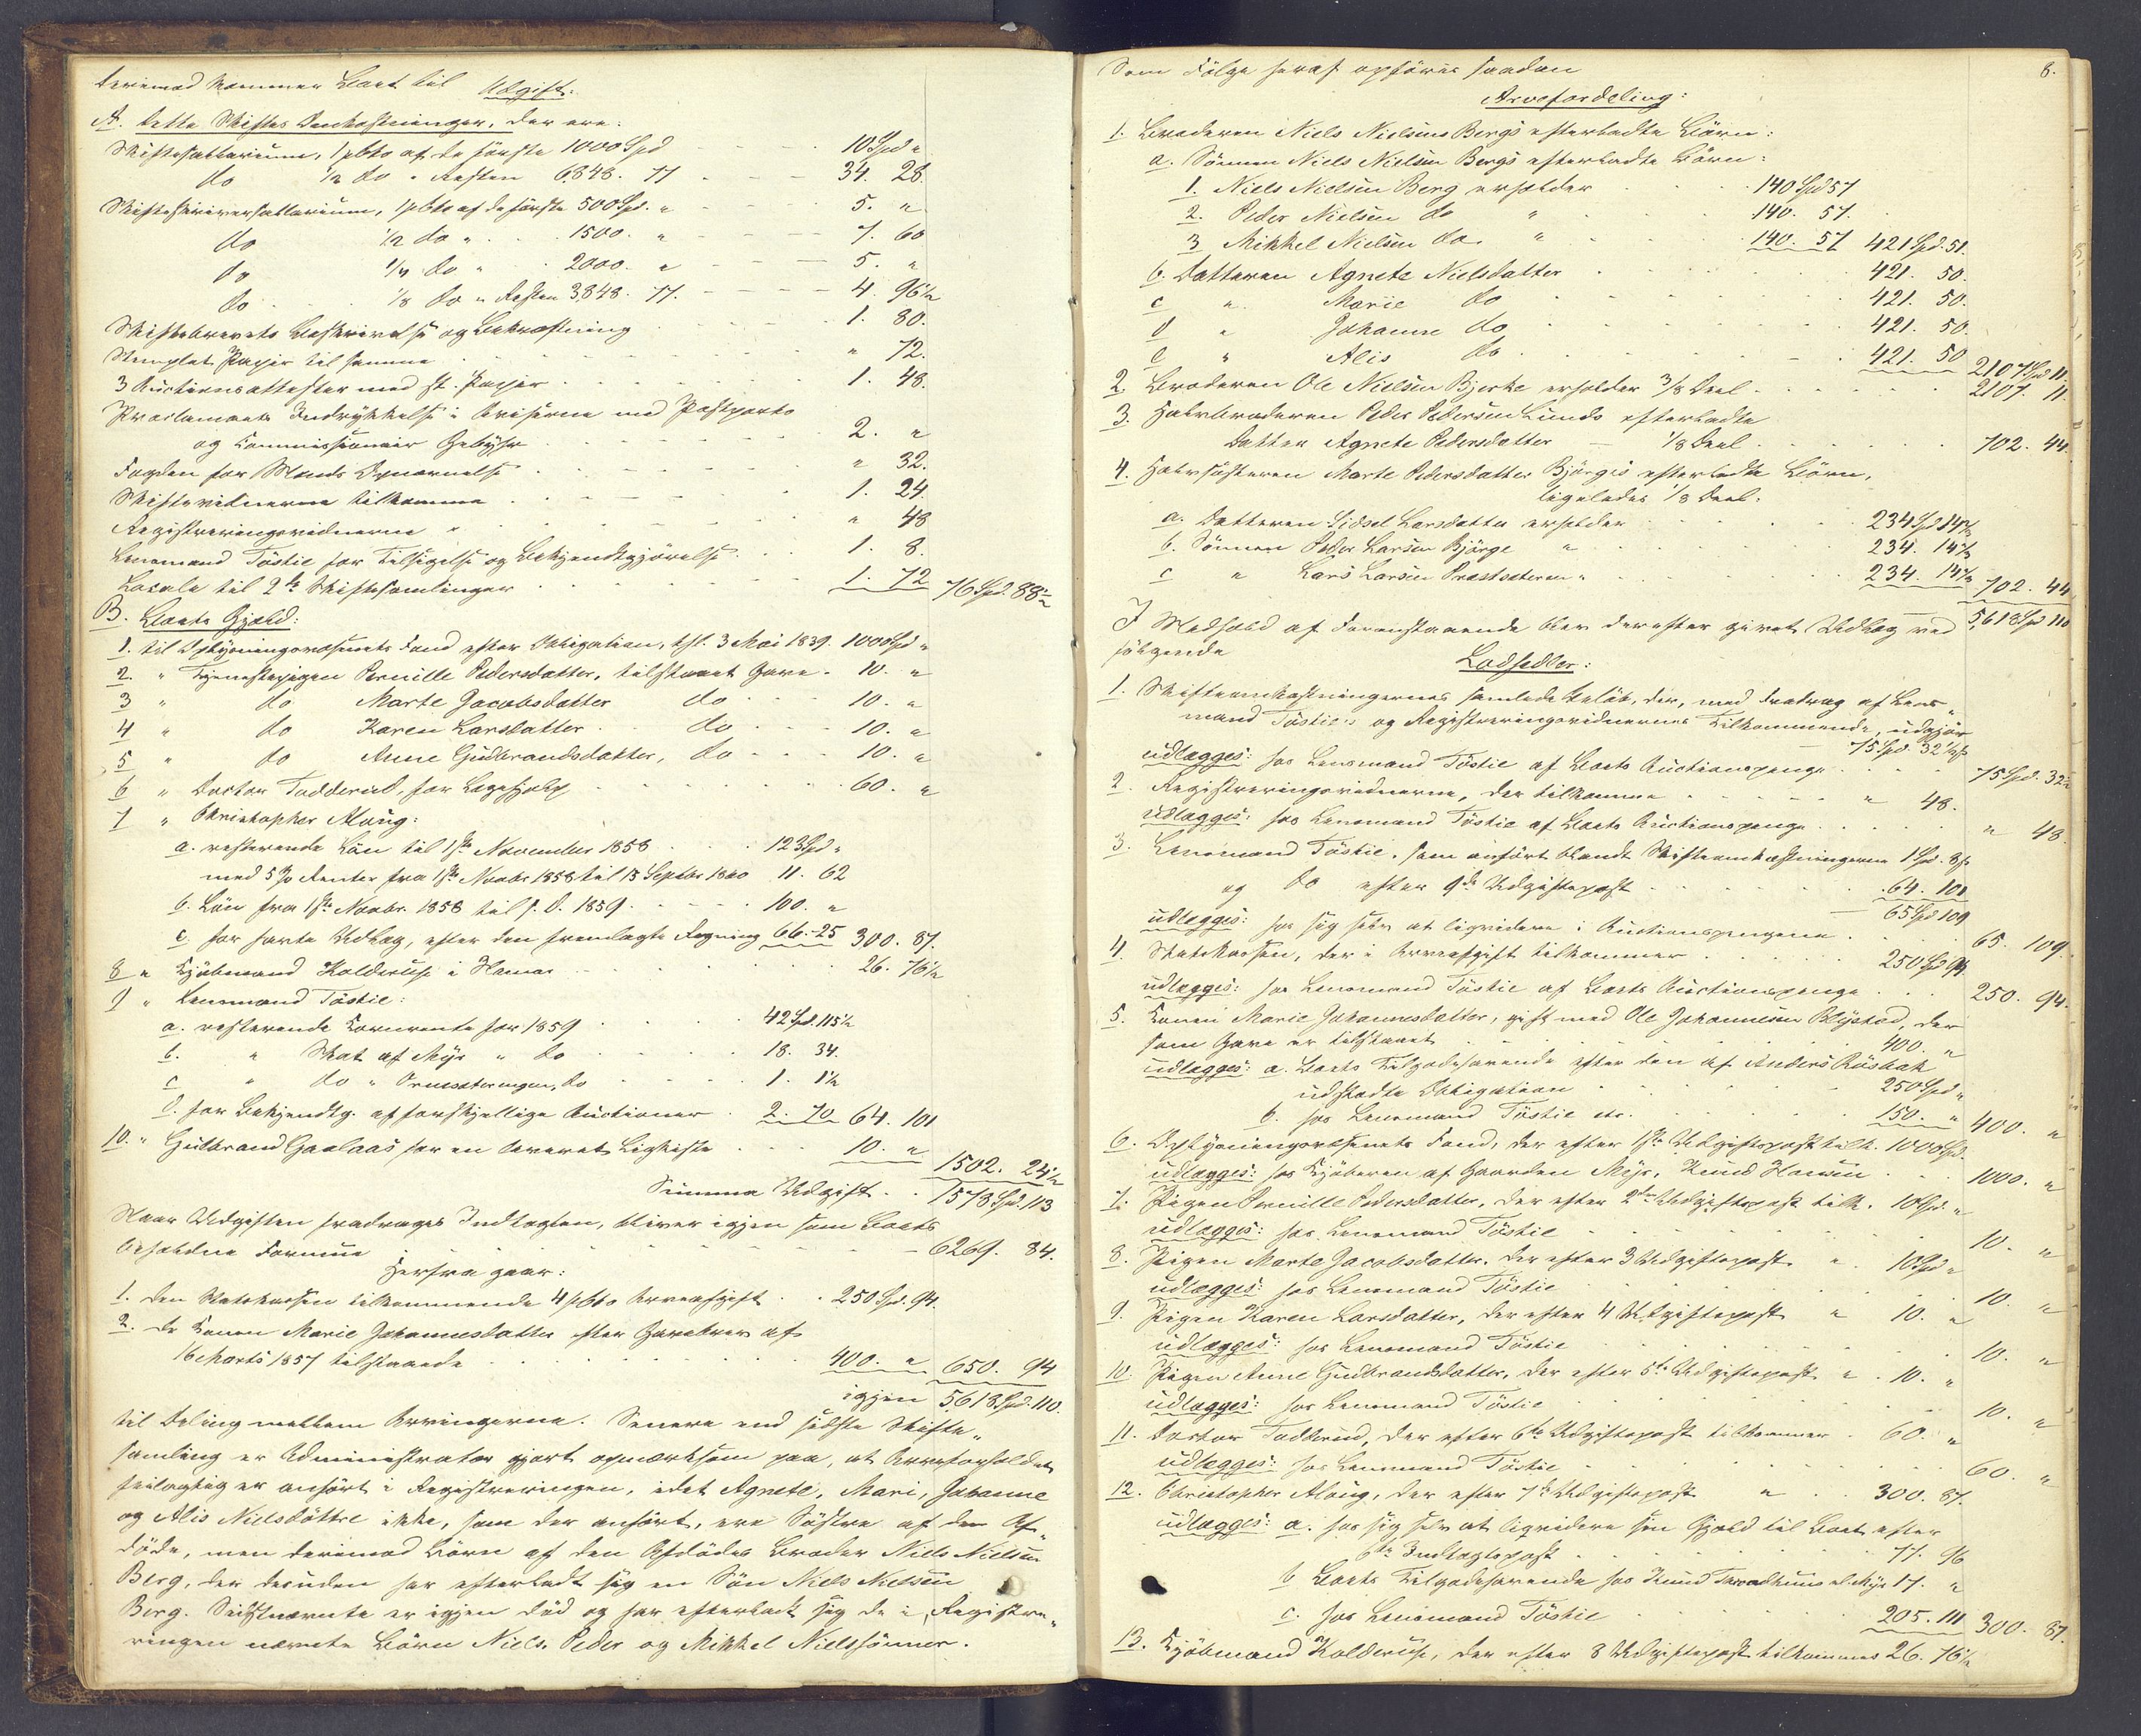 Derimod kommer Boet til Udgift:
A. Dette Skiftes Omkostninger, der ere:
Skiftesallarium, 1 pCto af de første 1000 Spd - - - 10 Spd "
do 1/2 do " Resten 6848. 77 - - - 34. 28.
Skifteskriversallarium, 1 pCto af de første 500 Spd. " - - - 5. "
do 1/2 do " . . 1500. " - - - 7. 60
do 1/4 do " . 2000. " - - - 5. "
do . . 1/8 do " Resten 3,848. 77. - - - 4. 96 1/2
Skiftebrevets Beskrivelse og Bekræftning - - - 1. 80.
Stemplet Papir til samme - - - " 72.
3 Auctionsattester med st. Papir - - - 1. 48.
Proclamaets Indrykkelse i Aviserne med Postporto
og Commissionair Gebyhr - - - 2. "
Fogden for Stervs Opnævnelse - - - " 32.
Skiftevidnerne tilkomme - - - 1. 24.
Registreringsvidnerne " - - - " 48
Lensmand Tøstie for Tilsigelse og Bekjendtgjørelse . . 1. 8.
Locale til 2de Skiftesamlinger - - - 1. 72 76 Spd. 88 1/2
B. Boets Gjæld:
1. til Oplysningsvæsenets Fond efter Obligation, tgl. 3 Mai 1839. 1000 Spd "
2. " Tjenestepigen Pernille Pedersdatter, tilstaaet Gave . 10. "
3 " do Marte Jacobsdatter do - - 10. "
4 " do Karen Larsdatter . . do - - - 10. "
5 " do Anne Gudbrandsdatter, do - - - 10. "
6 " Doctor Todderud, for Lægehjelp - - - 60. "
7 " Christopher Along:
a. resterende Løn til 1ste November 1858 . . . 123 Spd "
med 5 % Renter fra 1ste Novbr 1858 til 15 Septbr 1860 11. 62
b. Løn fra 1ste Novbr. 1858 til s. D. 1859 . - - - 100. "
c. for havte Udlæg, efter den fremlagte Regning 66. 25 300. 87.
8 " Kjøbmand Kolderup i Hamar - - - 26. 76 1/2
9 " Lensmand Tøstie:
a. resterende Kornrente for 1859 - - - 42 Spd. 115 1/2
b. " Skat af Myr " do - - - 18. 34.
c " do " Præstsæteringen, do - - - 1. 1 1/2
d. for Bekjendtg. af forskjellige Auctioner . 2. 70 64. 101
10. " Gulbrand Gaalaas for en leveret Ligkiste - - - 10. " 1502. 24 1/2
Summa Udgift . . 1578 Spd. 113
Naar Udgiften fradrages Indtægten, bliver igjen som Boets
beholdne Formue - - - 6269. 84.
Herfra gaar:
1. Den Statskassen tilkommende 4 pCto Arveafgift . . 250 Spd. 94.
2. De Konen Marie Johannesdatter efter Gavebrev af
16 Marts 1857 tilstaaede - - - 400. " 650. 94
igjen 5,618 Spd. 110.
til Deling mellem Arvingerne. Senere end sidste Skifte-
samling er Administrator gjort opmærksom paa, at Arveforholdet
feilagtig er anført i Registreringen, idet Agnete, Mari, Johanne
og Alis Nielsdøttre ikke, som der anført, ere Søstre af den Af-
døde, men derimod Børn af den Afdødes Broder Niels Nielsen
Berg, der desuden har efterladt sig en Søn Niels Nielsen
Berg. Sidstnævnte er igjen død og har efterladt sig de i Registre-
ringen nævnte Børn Niels, Peder og Mikkel Nielssønner.
8.
Som Følge heraf opføres saadan
Arvefordeling:
1. Broderen Niels Nielsens Bergs efterladte Børn:
a. Sønnen Niels Nielsen Bergs efterladte Børn:
1. Niels Nielsen Berg erholder . . . 140 Spd 57
2. Peder Nielsen do " . . . 140. 57.
3 Mikkel Nielsen do. " . . . 140. 57 421 Spd. 51.
b. Datteren Agnete Nielsdatter . . . 421. 50.
c " Marie do . . . 421. 50.
d " Johanne do . . . 421. 50.
e " Alis do . . . 421. 50 2107 Spd 11
2. Broderen Ole Nielsen Bjerke erholder 3/8 Deel . . . 2107. 11.
3. Halvbroderen Peder Pedersen Lunds efterladte
Datter Agnete Pedersdatter — 1/8 Deel . . . 702. 44.
4. Halvsøsteren Marte Pedersdatter Bjørges efterladte Børn,
ligeledes 1/8 Deel:
a. Datteren Sidsel Larsdatter erholder . . . 234 Spd 14 2/3
b. Sønnen Peder Larsen Bjørge " . . . 234. 14 2/3
c " Lars Larsen Præstsæteren " . . . 234. 14 2/3 702. 44
5,618 Spd 110
I Medhold af Foranstaaende blev derefter givet Udlæg ved
følgende
Lodsedler:
1. Skifteomkostningernes samlede Beløb, der, med Fradrag af Lens-
mand Tøsties og Registreringsvidnernes Tilkommende, udgjør
— 75 Spd. 32 1/2 s
udlægges: hos Lensmand Tøstie af Boets Auctionspenge . . . 75 Spd. 32 1/2
2. Registreringsvidnerne, der tilkomme . . . " 48.
udlægges: hos Lensmand Tøstie af Boets Auctionspenge . . . " 48
3. Lensmand Tøstie, som anført blandt Skifteomkostningerne 1 Spd. 8 s
og do efter 9de Udgiftspost . . . 64. 101
— 65 Spd 109
udlægges: hos sig selv at liqvidere i Auctionspengene . . . 65. 109.
4. Statskassen, der i Arveafgift tilkommer . . . 250 Spd 94.
udlægges: hos Lensmand Tøstie af Boets Auctionspenge . . . 250. 94.
5. Konen Marie Johannesdatter, gift med Ole Johannesen Blystad, der
som Gave er tilstaaet . . . 400. "
udlægges: a. Boets Tilgodehavende efter den af Anders Røsbak
udstædte Obligation . . . 250 Spd "
b. hos Lensmand Tøstie etc. . . . 150. " 400. "
6. Oplysningsvæsenets Fond, der efter 1ste Udgiftspost tilk. 1000 Spd.
udlægges: hos Kjøberen af Gaarden Myr, Knud Hansen . . . 1000. "
7. Pigen Pernille Pedersdatter, der efter 2den Udgiftspost tilk. 10 Spd. "
udlægges: hos Lensmand Tøstie . . . 10. "
8. Pigen Marte Jacobsdatter, der efter 3 Udgiftspost " . 10 Spd "
udlægges: hos Lensmand Tøstie . . . 10. "
9. Pigen Karen Larsdatter, der efter 4 Udgiftspost " 10. "
udlægges: hos Lensmand Tøstie . . . 10. "
10. Pigen Anne Gudbrandsdatter, der efter 5te Udgiftspost " . 10. "
udlægges: hos Lensmand Tøstie . . . 10. "
11. Doctor Todderud, der efter 6te Udgiftspost tilkommer . 60. "
udlægges: hos Lensmand Tøstie . . . 60. "
12. Christopher Along, der efter 7de Udgiftspost " . . 300. 87.
udlægges: a. hos sig selv at liqvidere sin Gjæld til Boet efter
6te Indtægtspost . . . 77. 96
b Boets Tilgodehavende hos Knud Myr 17. "
c. hos Lensmand Tøstie . . . 205. 111 300. 87.
13. Kjøbmand Kolderup, der efter 8 Udgiftspost tilkommer 26. 76 1/2